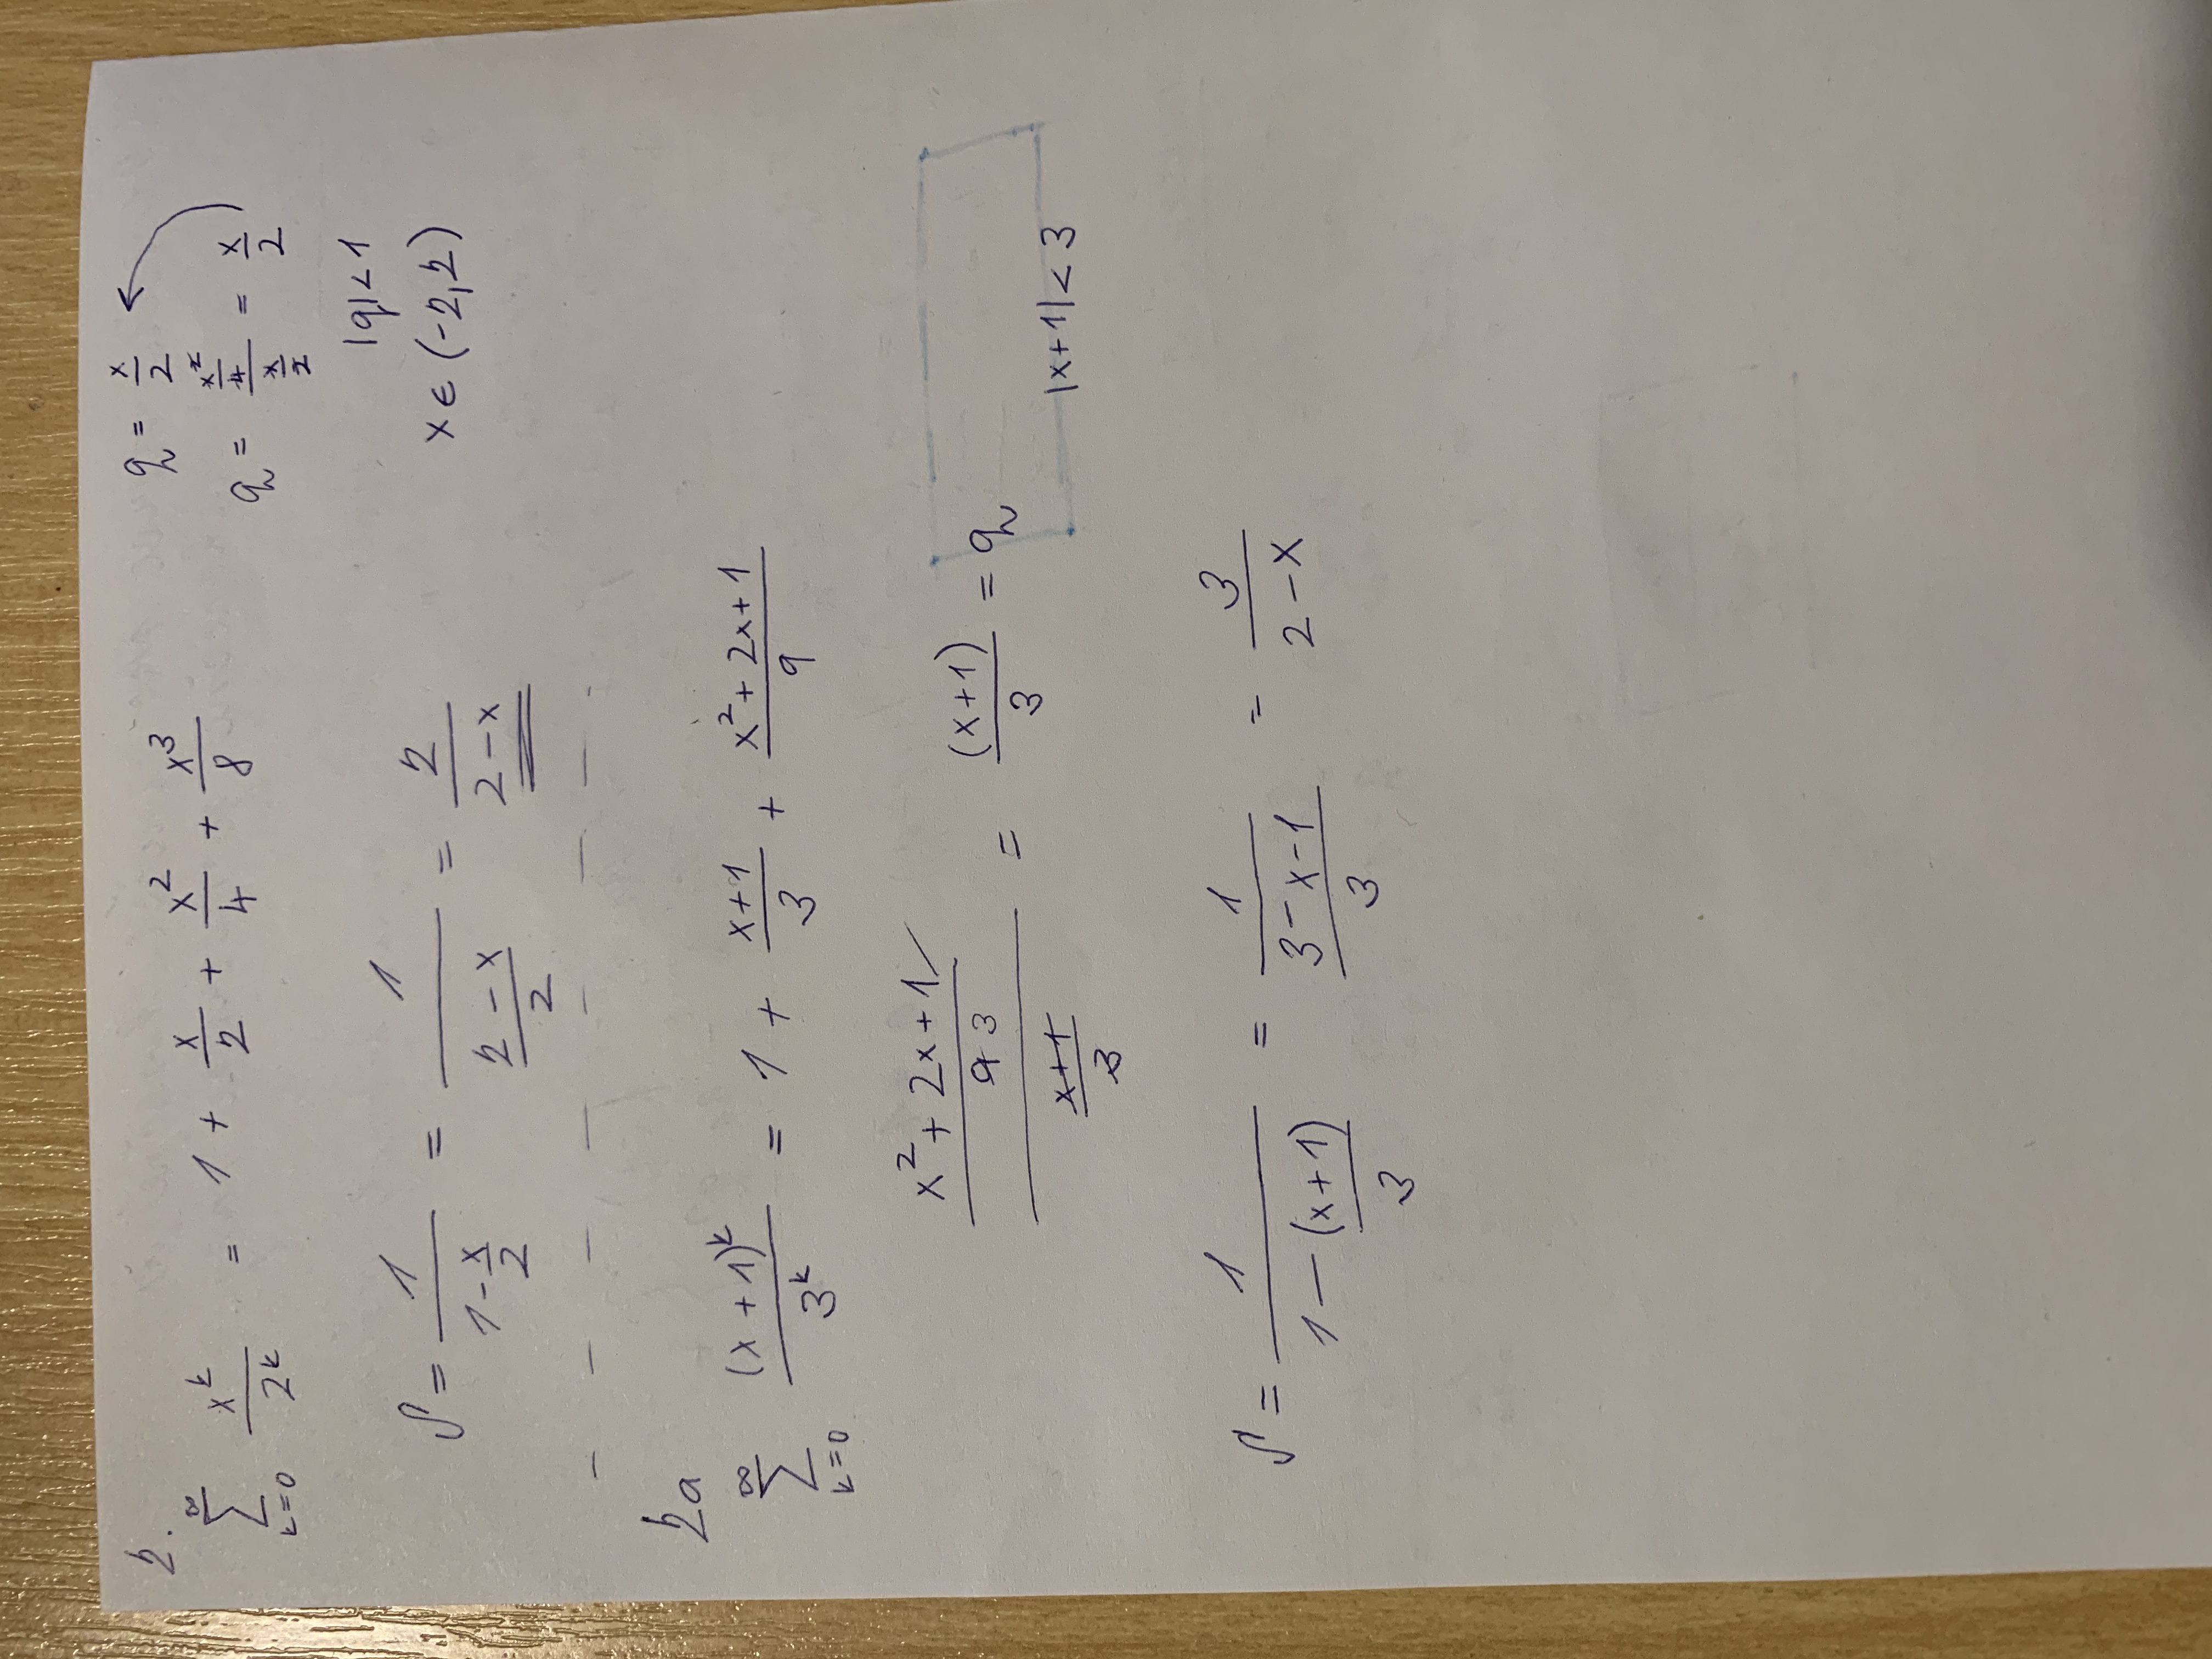 2. ∑_{k=0}^{∞} x^k/2^k = 1 + x/2 + x²/4 + x³/8
q = x/2
q = (x²/4)/(x/2) = x/2
|q| < 1
x ∈ (-2,2)
S = 1/(1 - x/2) = 1/((2 - x)/2) = 2/(2 - x)
2a
∑_{k=0}^{∞} (x+1)^k/3^k = 1 + (x+1)/3 + (x² + 2x + 1)/9
((x² + 2x + 1)/9 3)/((x+1)/3) = (x+1)/3 = q
|x+1| < 3
S = 1/(1 - (x+1)/3) = 1/((3 - x - 1)/3) = 3/(2 - x)